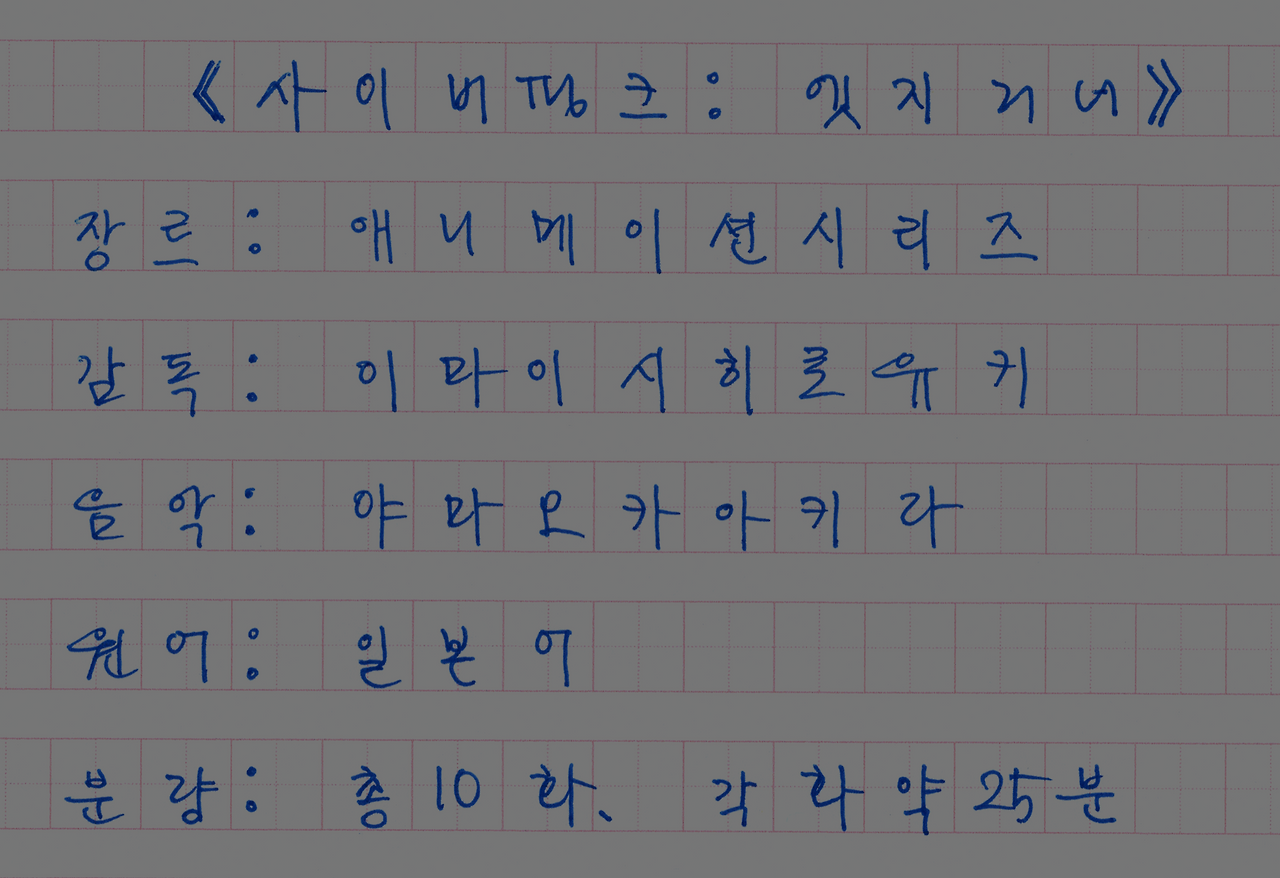 《사이버펑크: 엣지러너》
장르: 애니메이션시리즈
감독: 이마이시히로유키
음악: 야마오카아키라
원어: 일본어
분량: 총 10화、 각화약25분